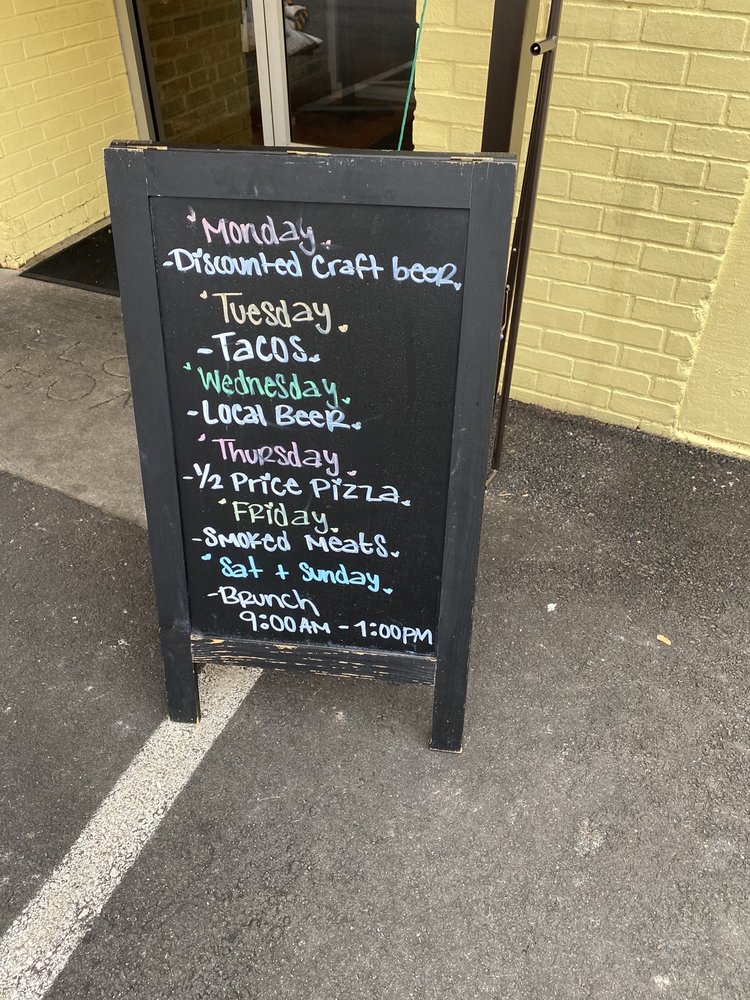 Monday
-Discounted Craft beer
Tuesday
-Tacos
Wednesday
-Local Beer
Thursday
-1/2 Price Pizza
Friday
-Smoked Meats
Sat + Sunday
-Brunch
9:00AM - 1:00PM